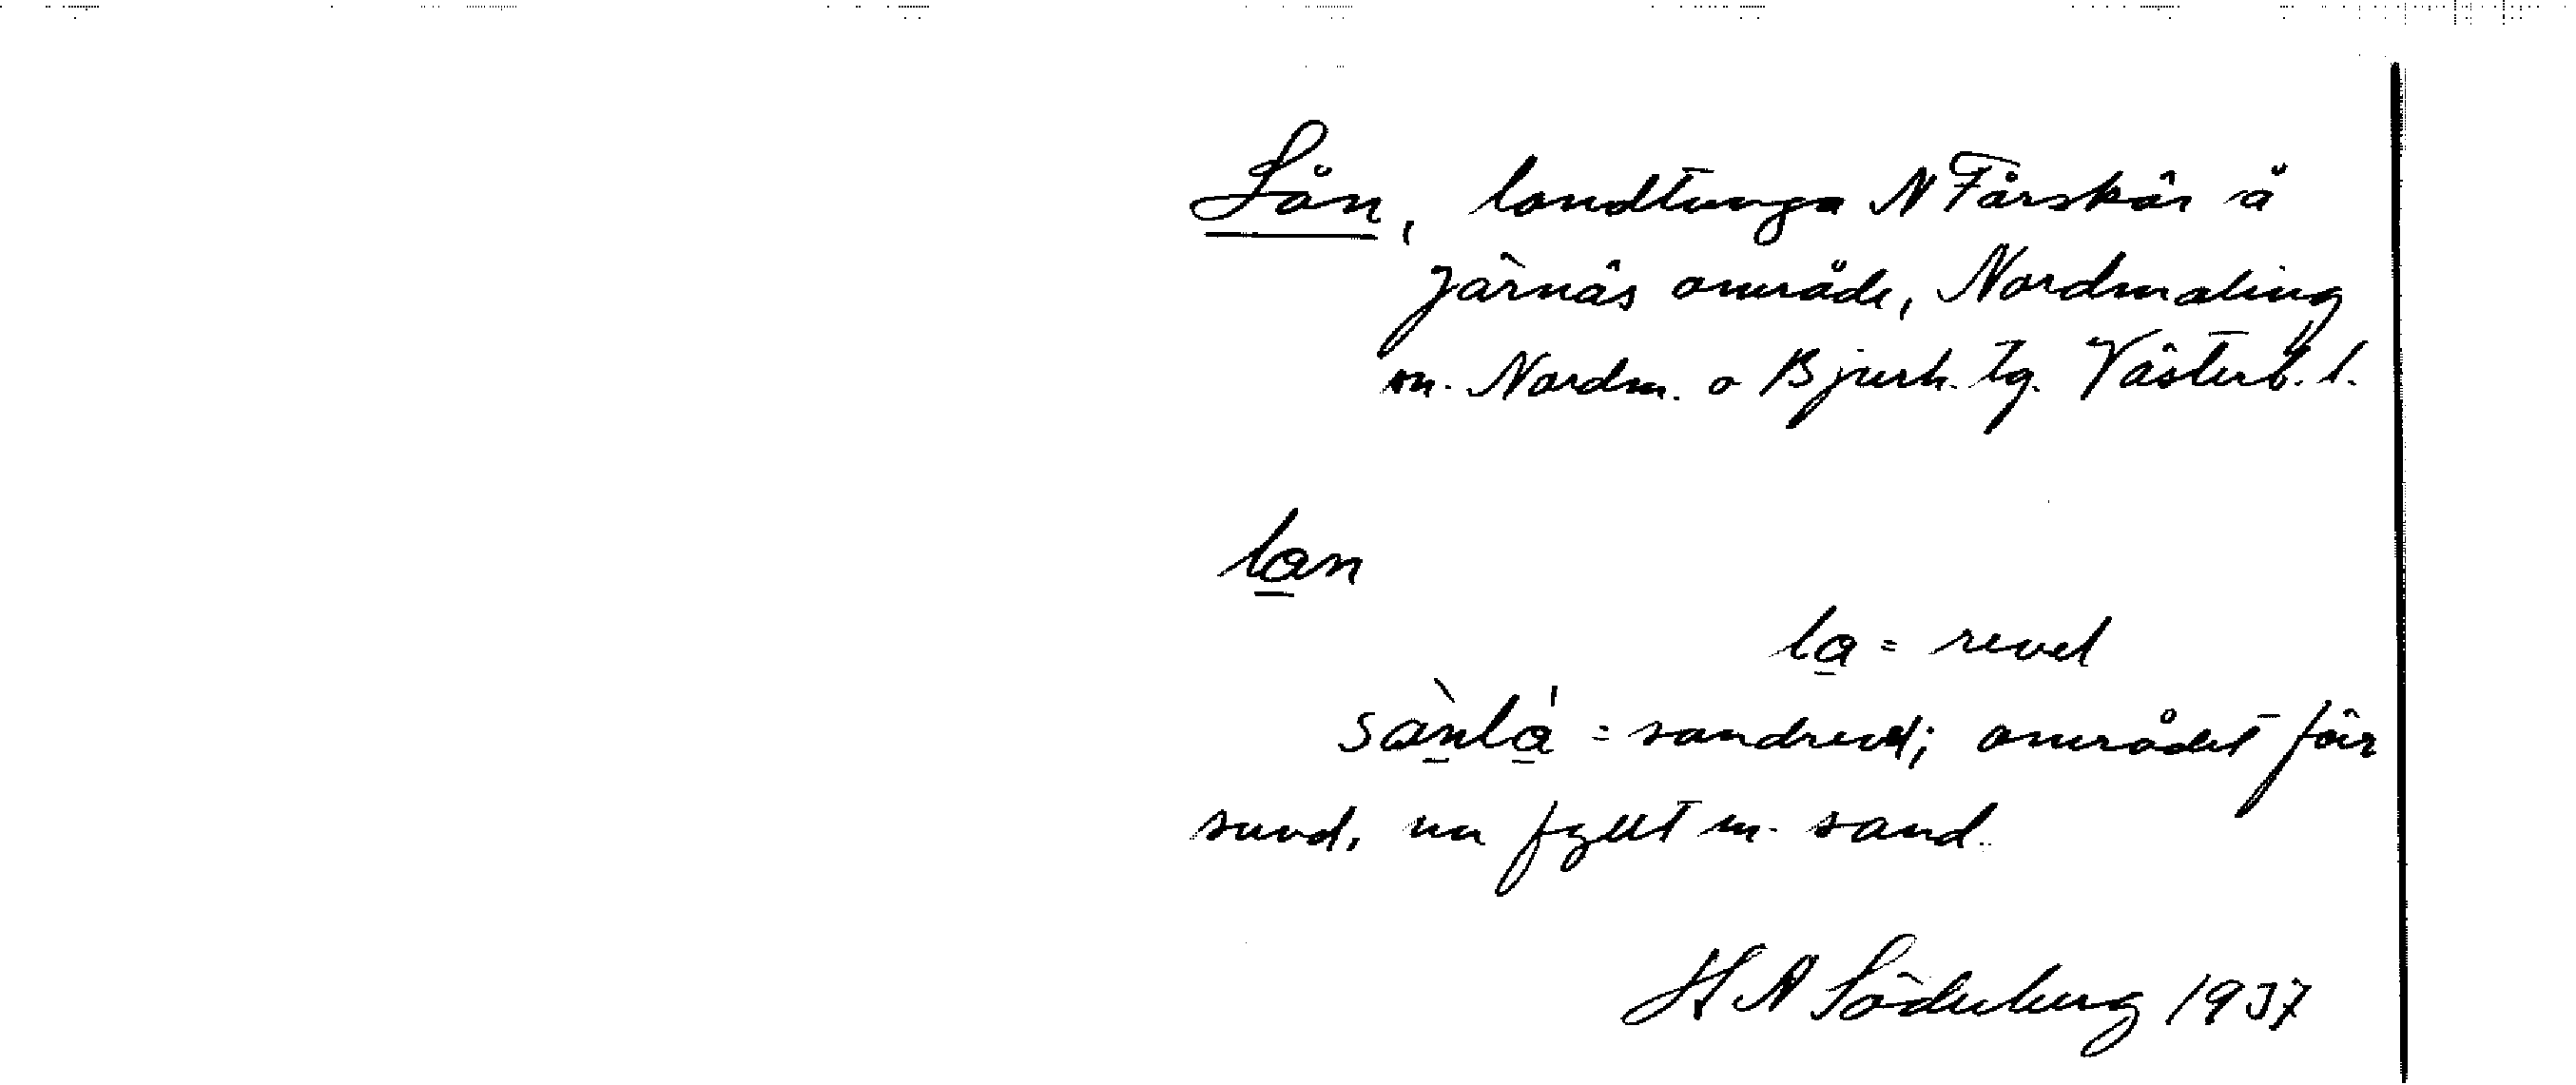 Lån, landtunga N Fårskär å
Järnäs område, Nordmaling
sn. Nordm. o Bjurh. tg. Västerb. l.
lan
la = revel
sànlá = sandrevel; området för
sund, nu fyllt m. sand.
H A Söderberg 1937